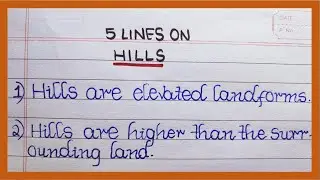 5 LINES ON
HILLS
1) Hills are elevated landforms.
2) Hills are higher than the surr-
ounding land.